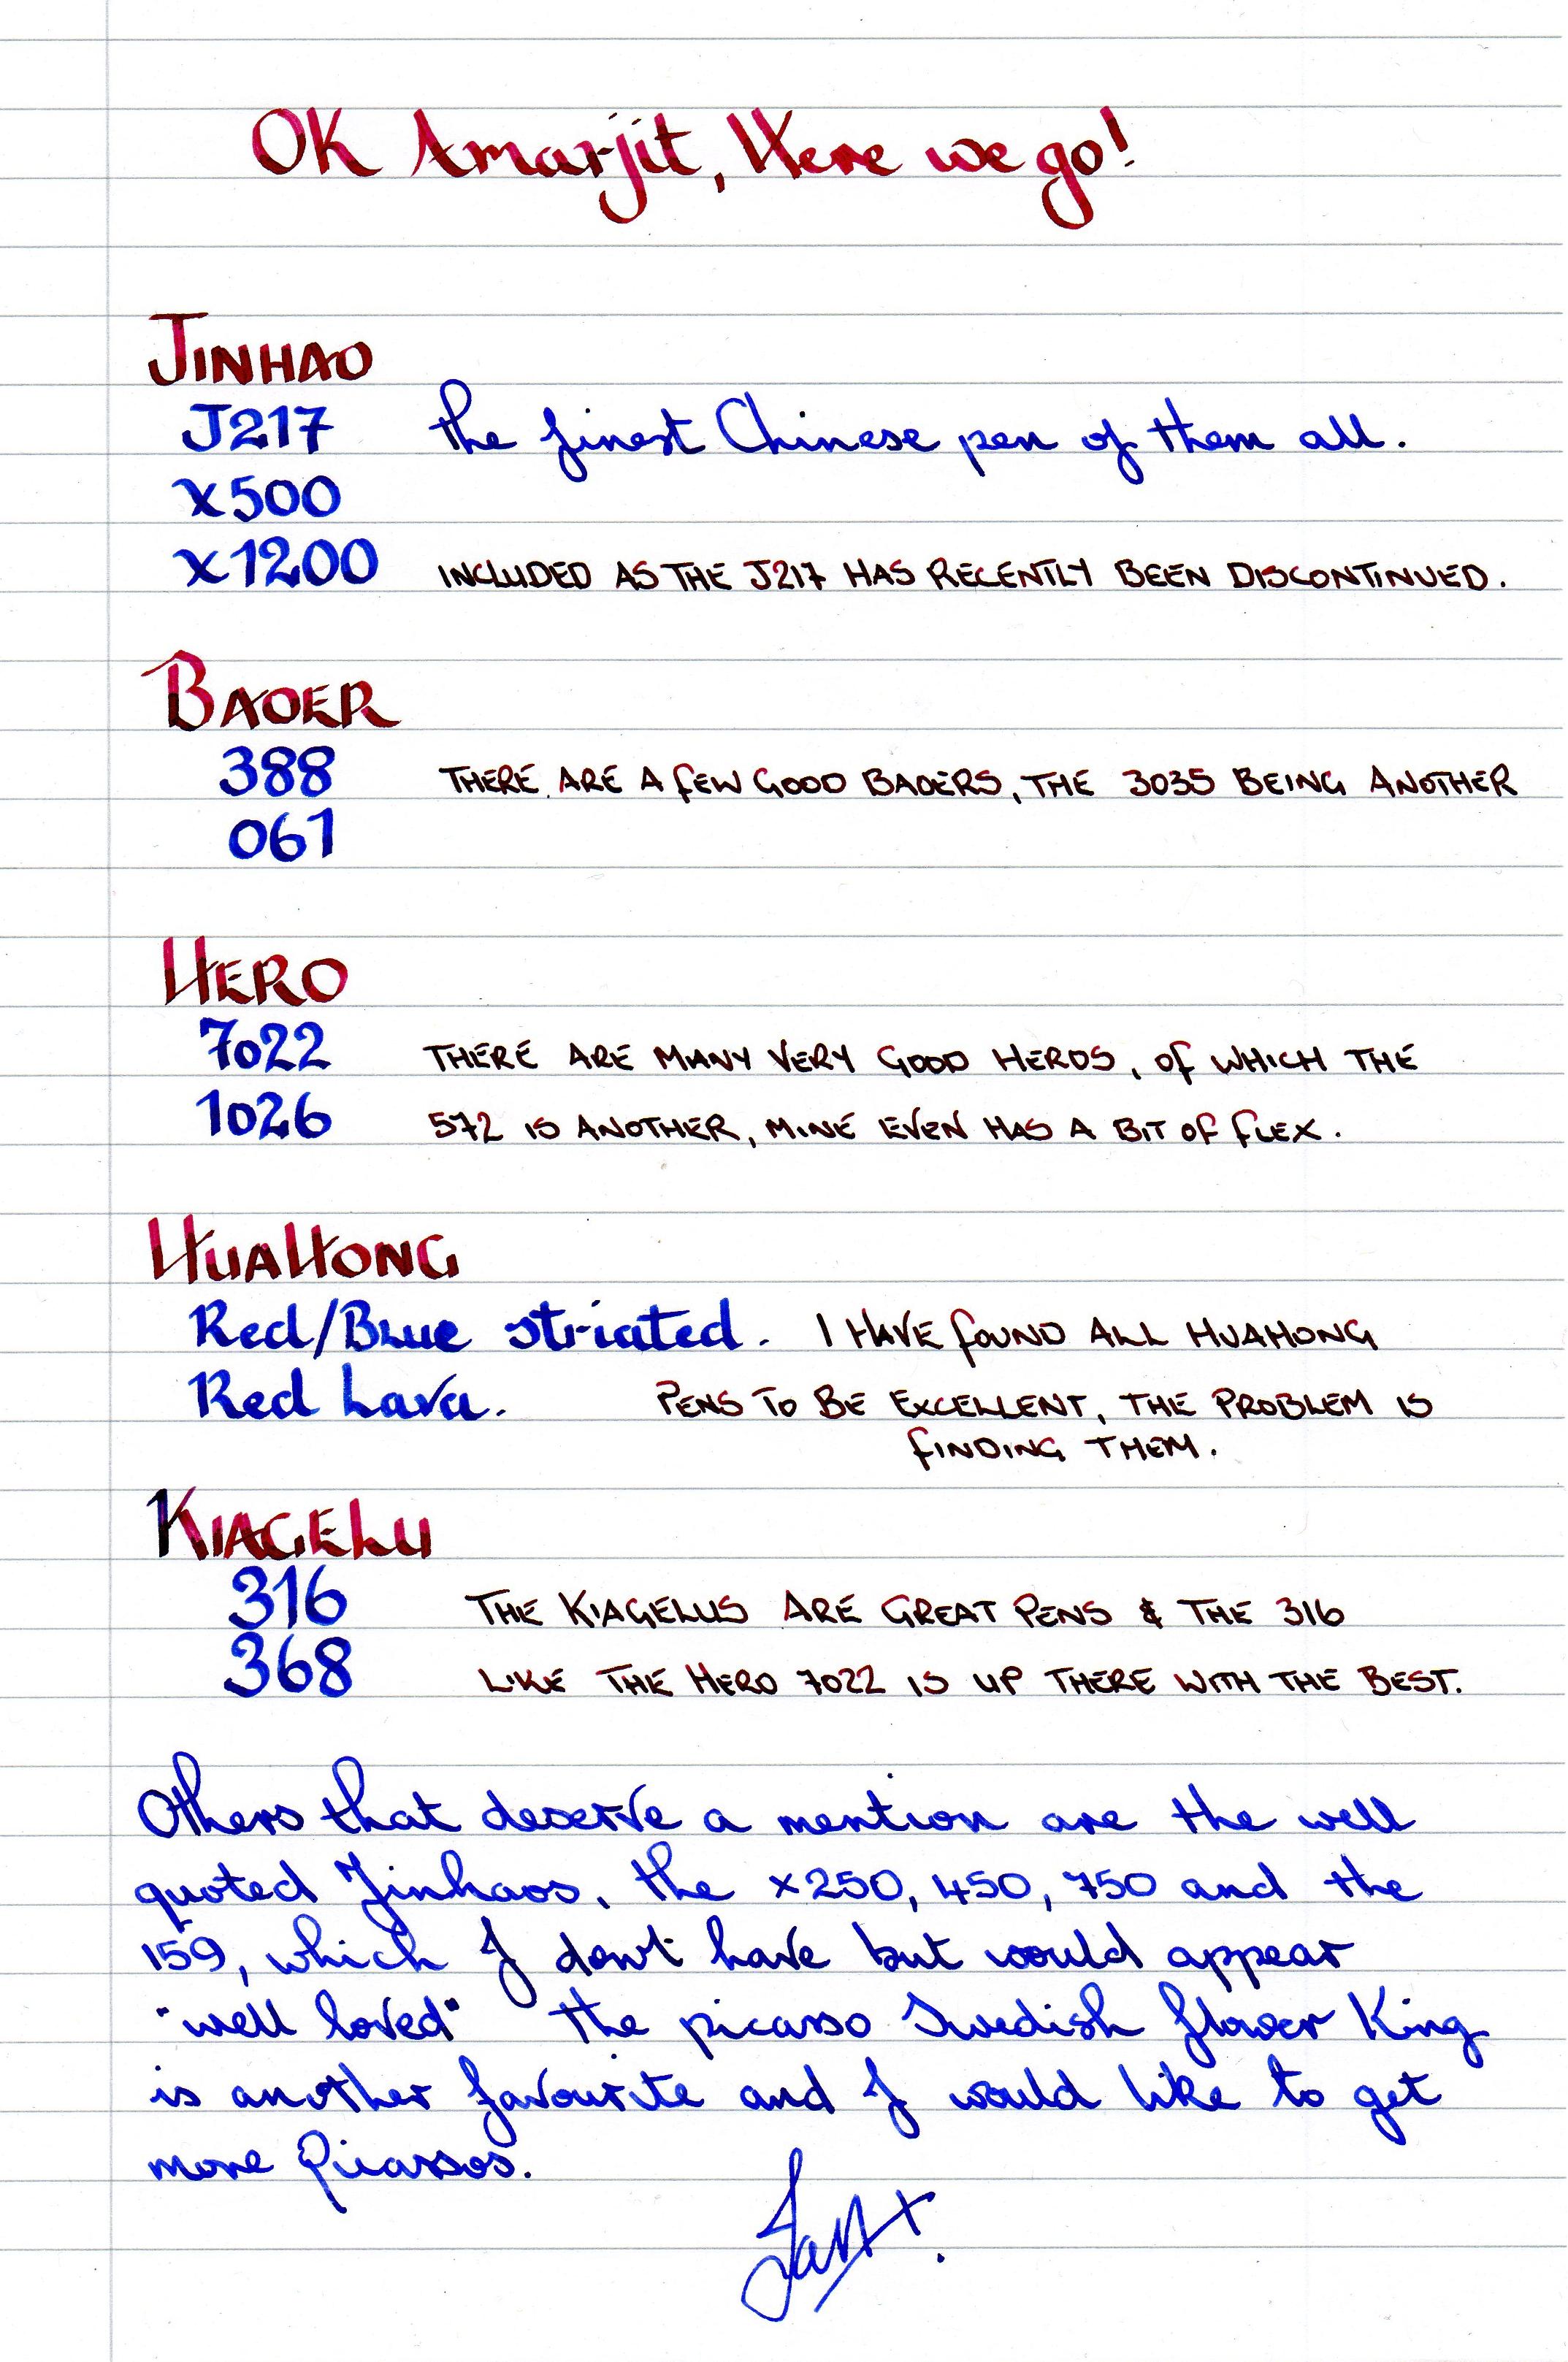 OK Amarjit, Here we go!
JINHAO
J217 the finest Chinese pen of them all.
X500
X1200 INCLUDED AS THE J217 HAS RECENTLY BEEN DISCONTINUED.
BAOER
388 THERE ARE A FEW GOOD BAOERS, THE 3035 BEING ANOTHER
061
HERO
7022 THERE ARE MANY VERY GOOD HEROS, OF WHICH THE
1026 572 IS ANOTHER, MINE EVEN HAS A BIT OF FLEX.
HUAHONG
Red/Blue striated. I HAVE FOUND ALL HUAHONG
Red Lava. PENS TO BE EXCELLENT, THE PROBLEM IS
FINDING THEM.
KIAGELU
316 THE KIAGELUS ARE GREAT PENS & THE 316
368 LIKE THE HERO 7022 IS UP THERE WITH THE BEST.
Others that deserve a mention are the well
quoted Jinhaos, the x250, 450, 750 and the
159, which I don't have but would appear
"well loved" the picasso Swedish flower King
is another favourite and I would like to get
more Picassos.